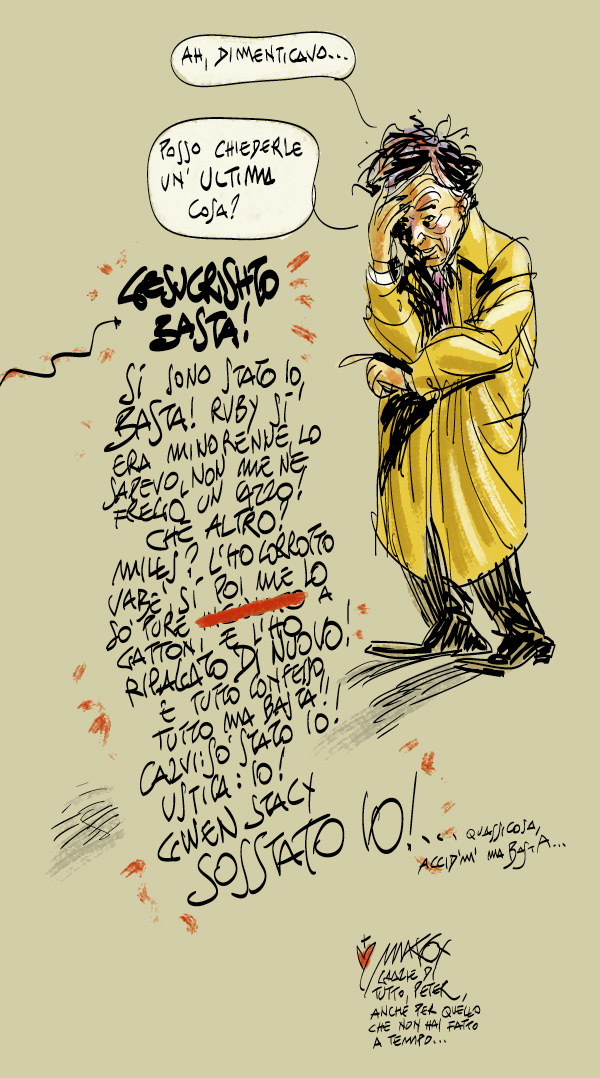 AH, DIMENTICAVO...
POSSO CHIEDERLE
UN' ULTIMA
COSA?
GESUCRISHTO
BASTA!
SÍ SONO STATO IO,
BASTA! RUBY SÍ
ERA MINORENNE, LO
SAPEVO, NON ME NE
FREGO UN CAZZO!
CHE ALTRO?
MILES? L'HO CORROTTO
VABE' SÍ POI ME LO
SO' PURE A
GATTONI E L'HO
RIPAGATO DI NUOVO!
E TUTTO CONFESSO
TUTTO MA BASTA!!
CALVI: SO' STATO IO!
USTICA: IO!
GWEN STACY
SOSSTATO IO!...
QUASSICOSA,
ACCIDIMI MA BASTA...
MAKKOX
GRAZIE DI
TUTTO, PETER,
ANCHE PER QUELLO
CHE NON HAI FATTO
A TEMPO...